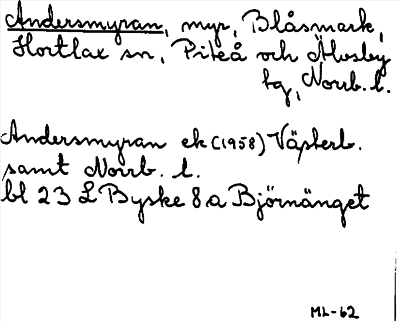 Andersmyran, myr, Blåsmark,
Hortlax sn, Piteå och Älvsby
tg, Norrb. l.
Andersmyran ek (1958) Västerb.
samt Norrb. l.
bl 23 L Byske 8 a Björnänget
ML-62